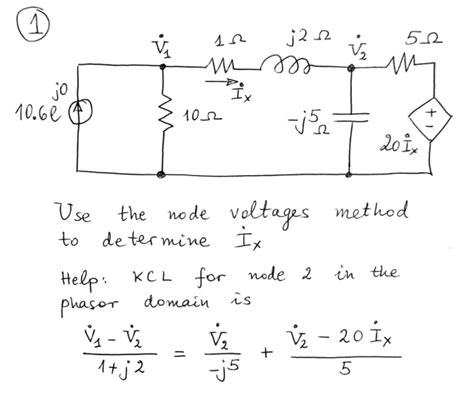 1
V̇₁ 1Ω j2Ω V̇₂ 5Ω
İₓ
10.6e^j0 10Ω -j5Ω + − 20İₓ
Use the node voltages method
to determine İₓ
Help: KCL for node 2 in the
phasor domain is
(V̇₁ - V̇₂)/(1+j2) = V̇₂/(-j5) + (V̇₂ - 20İₓ)/5